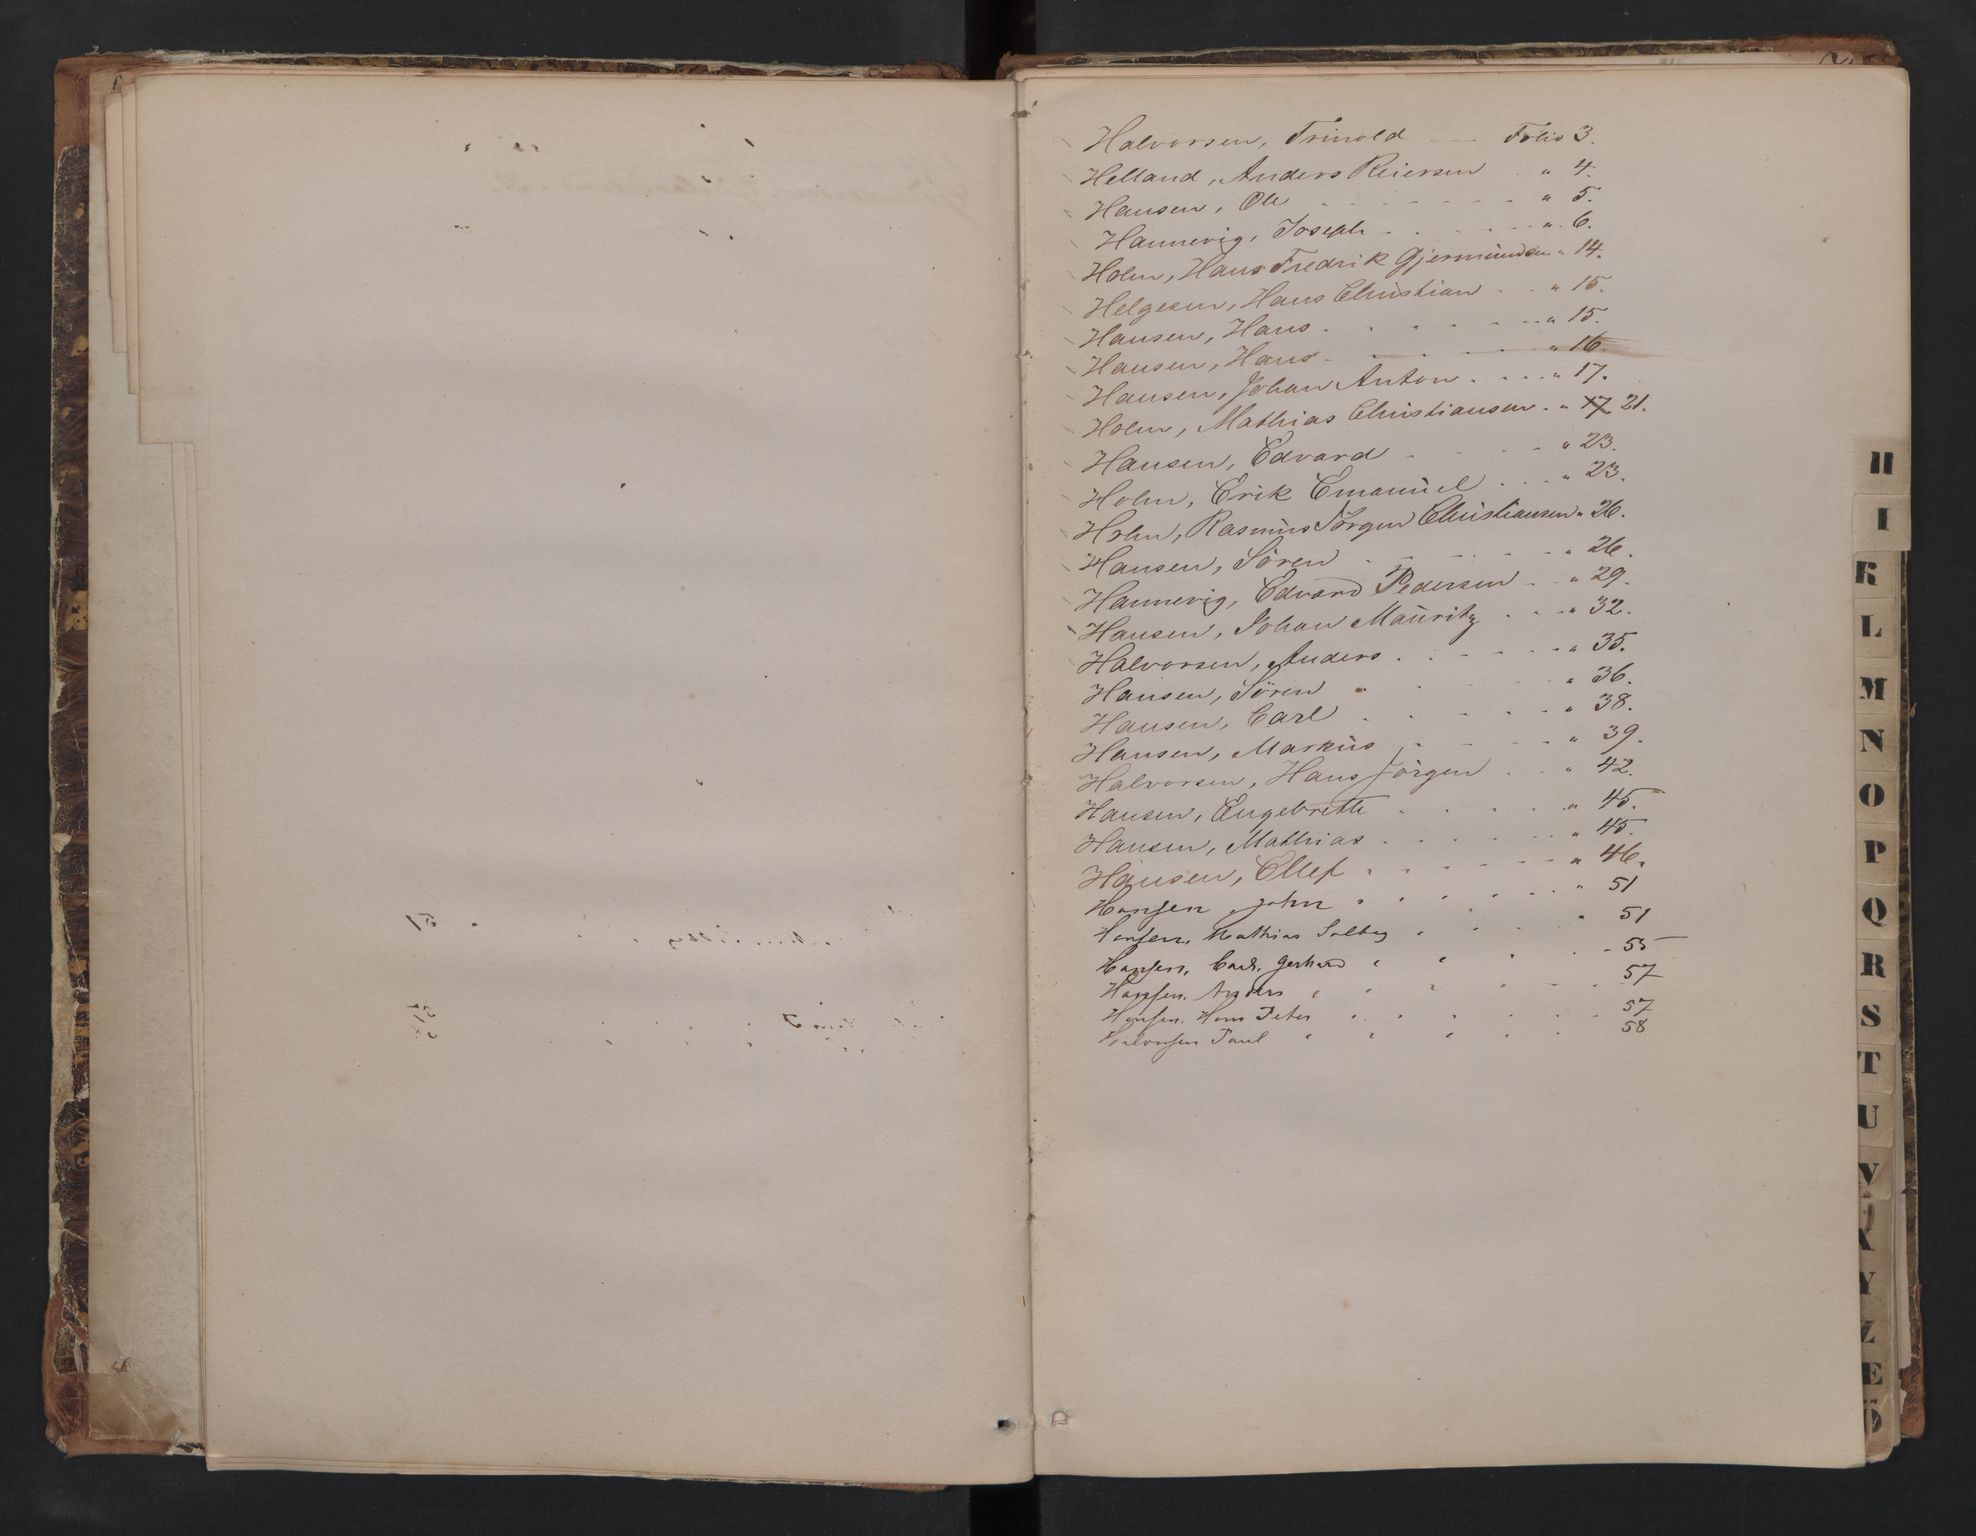 Halvorsen, Trinold — Folio 3.
Helland, Anders Reiersen . " 4.
Hansen, Ole - - - - - - " 5.
Hannevig, Joseph . - - - - " 6.
Holm, Hans Fredrik Gjermundsen " 14.
Helgesen, Hans Christian . . " 15.
Hansen, Hans . - - - - " 15.
Hansen, Hans . - - - " 16.
Hansen, Johan Anton . . . . " 17.
Holm, Mathias Christiansen . " 17 21.
Hansen, Edvard - - - " 23.
Holm, Erik Emanuel . . . " 23.
Holm, Rasmus Jörgen Christiansen " 26.
Hansen, Sören . - - - - " 26.
Hannevig, Edvard Pedersen . . " 29.
Hansen, Johan Mauritz . . . " 32.
Halvorsen, Anders . - - - - " 35.
Hansen, Sören . - - - - " 36.
Hansen, Carl . - - - - " 38.
Hansen, Markus - - - - " 39.
Halvorsen, Hans Jörgen . . " 42.
Hansen, Engebrette . . . . " 45.
Hansen, Mathias . - - - - " 45.
Hansen, Ellef . - - - - " 46.
Hansen, John " " " " " 51
Hansen, Mathias Solberg " " " " 51
Hansen, Carl. Gerhard " " " " 55
Hansen. Anders " " " " 57
Hansen. Hans Peter " " " " 57
Halvorsen Paul " " " " 58
H
I
K
L
M
N
O
P
Q
R
S
T
U
V
X
Y
Z
Æ
Ö